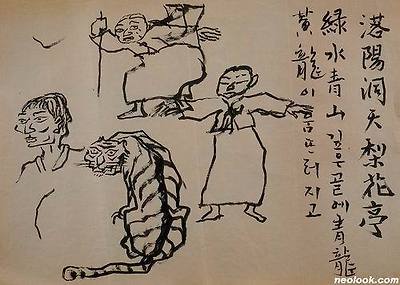 洛陽洞天梨花亭
綠水青山 깊은 골에 青龍
黃龍이 굼뜨러지고
neolook.com